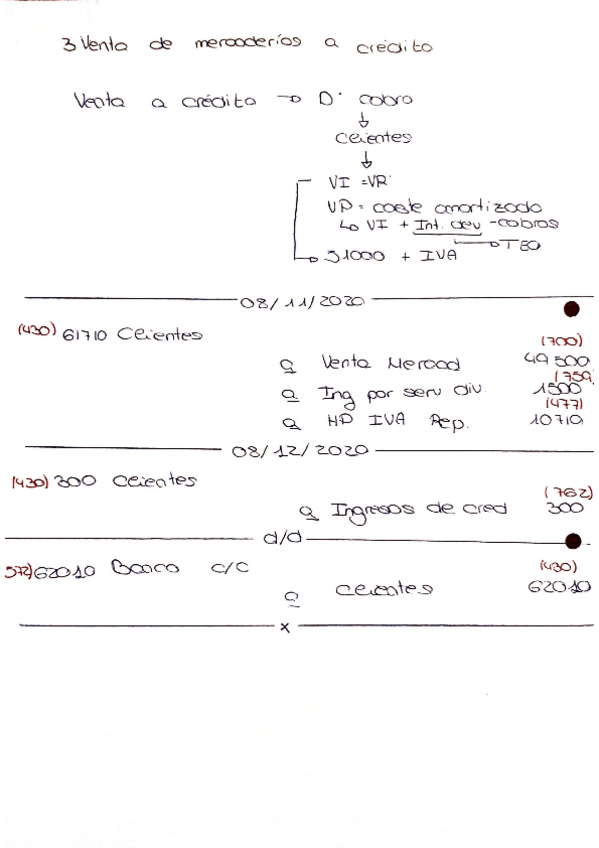 3 Venta de mercaderías a crédito
Venta a crédito → Dº cobro
↓
Clientes
↓
VI = VR
VP = coste amortizado
↳ VI + Int. dev - cobros
→ TEO
→ 51000 + IVA
08/11/2020
(430) 61710 Clientes
(700)
a Venta Mercad 49500
(759)
a Ing por serv div. 1500
(477)
a HP IVA Rep. 10710
08/12/2020
(430) 300 Clientes
(762)
a Ingresos de cred 300
d/d
572) 62010 Banco c/c
(430)
a Clientes 62010
x